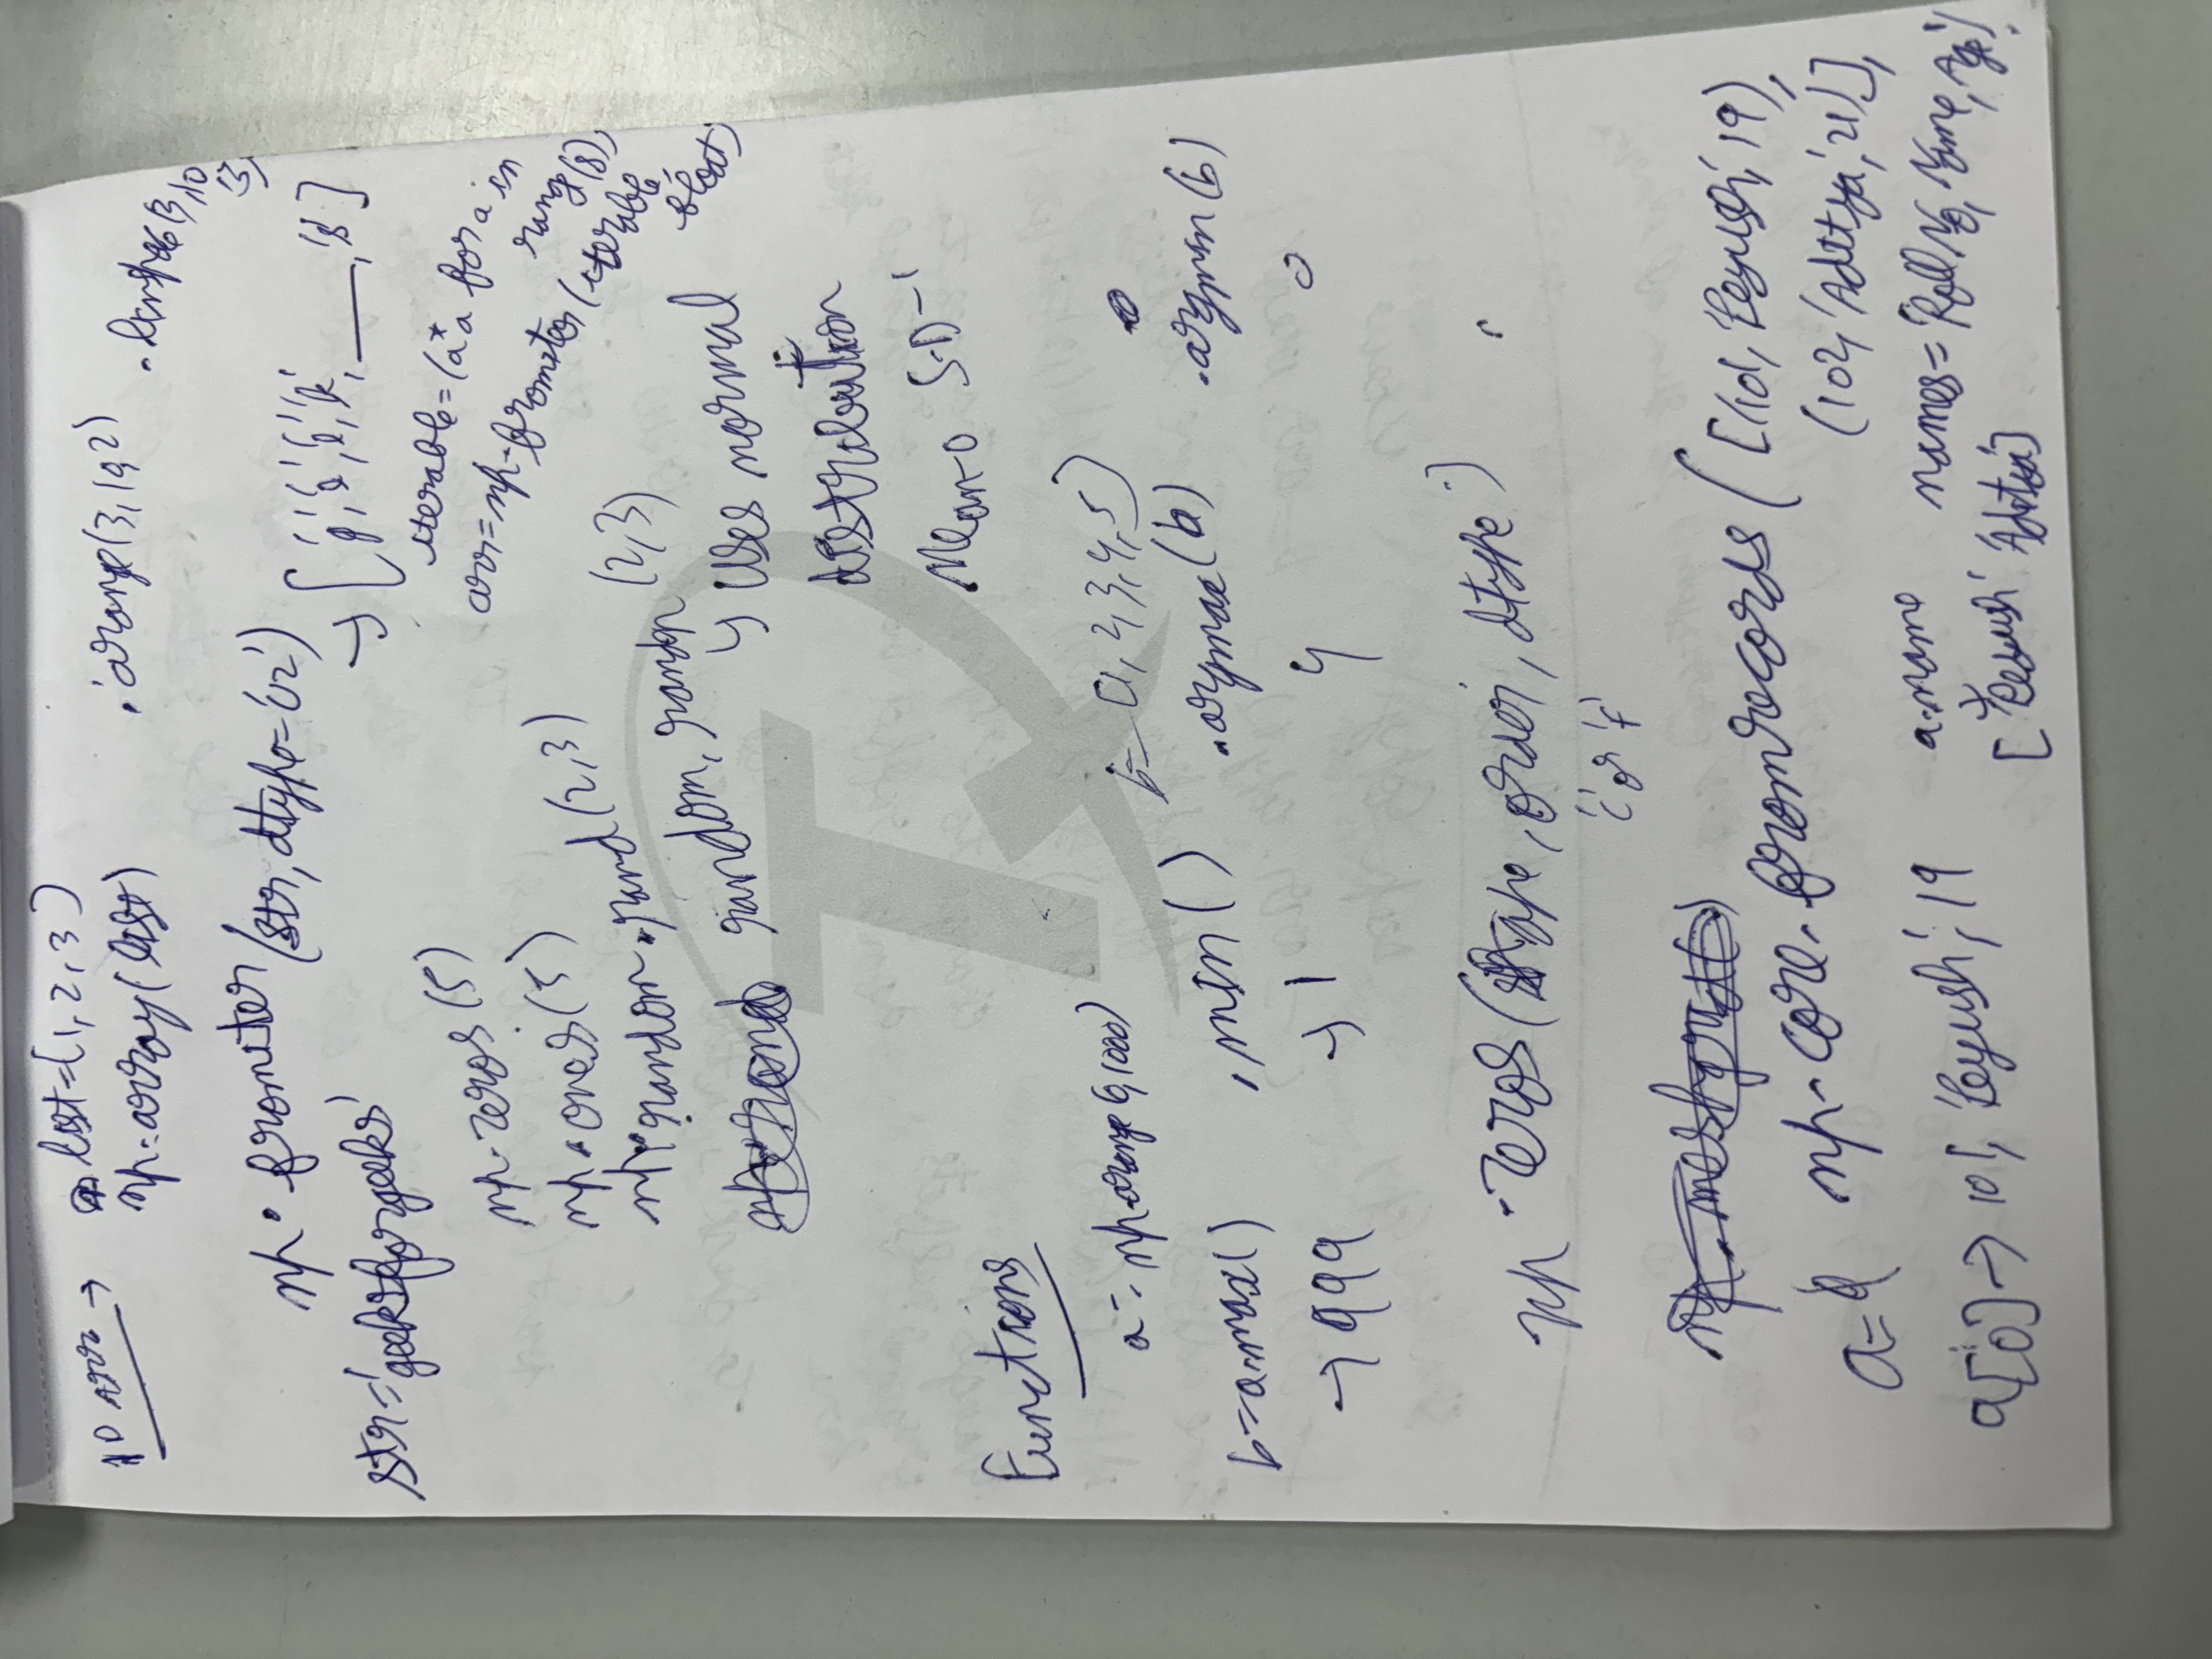 1D Arr → list=[1, 2, 3]
np.array(list)
.arange(3,10,2)
.linspace(3,10
,3)
np.fromiter(str, dtype='U2')
→ ['g','e','e','k', ___, 's']
str='geeksforgeeks'
iterable=(a*a for a in
range(8))
arr=np.fromiter(iterable,
float)
np.zeros(5)
np.ones(5)
np.random.rand(2,3)
random.randn(2,3)
↳ Uses normal
distribution
Mean-0 S.D-1
Functions
a= np.arange(1,1000)
b= [1,2,3,4,5]
b=a.max() .min() .argmax(b) .argmin(b)
→ 999 → 1 4 0
np.zeros(shape, order, dtype)
'C' or 'F'
a= np.core.fromrecords([(101, 'Peyush', 19),
(102, 'Aditya', 21)],
names='Roll No, Name, Age')
a[0] → 101, 'Peyush', 19
a.name
['Peyush' 'Aditya']